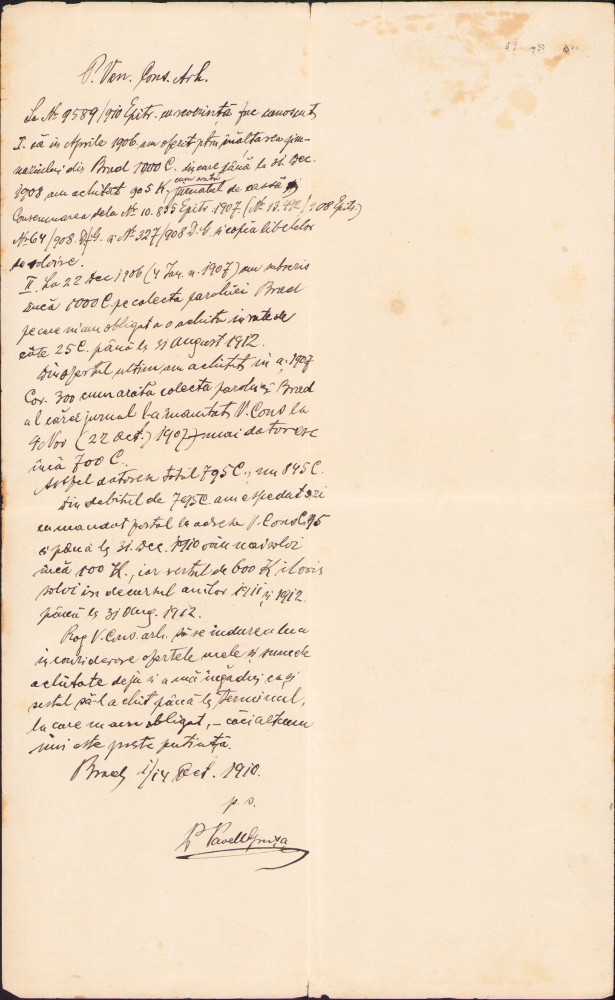 P. Ven. Cons. Arh.
La Nr 9589/910 Epitr. cu reverință fac cunoscut,
I. că în Aprilie 1906 am oferit ptru înălțarea gim-
naziului din Brad 1000 C. din care până la 31. Dec.
1908 am achitat 905 K, cum arată jurnalul de cassă și
Consemnarea delà Nr. 10.835 Epitr 1907 (Nr 13.412/908 Epitr)
Nr 64/908 D.G. și Nr 327/908 D.G și copia libelelor
de solvire.
II. La 22 Dec 1906 (4 Jan. n. 1907) am subscris
încă 1000 C pe colecta parohiei Brad
pe care m'am obligat a o achita în rate de
câte 25 C. până la 31 August 1912.
Din ofertul ultim am achitat, în a. 1907
Cor. 300 cum arată colecta parohiei Brad
al cărei jurnal l-a înaintat, V. Cons la
4 Nov (22 Oct.) 1907, mai datoresc
încă 700 C.
Astfel datoresc total 795 C., nu 845 C.
Din debitul de 795 C. am espedat azi
cu mandat postal la adresa V. Cons C. 95
și până la 31. Dec. 1910 voiu mai solvi
încă 100 K., iar restul de 600 K îl voiu
solvi în decursul anilor 1911 și 1912
până la 31 Aug. 1912.
Rog V. Cons. arh. să se îndure a lua
în considerare ofertele mele și sumele
achitate deja și a mă îngădui ca și
restul să-l achit până la terminul,
la care m'am obligat, – căci altcum
îmi este peste putință.
Brad, 1/14 Oct. 1910.
p. s.
P Pavel